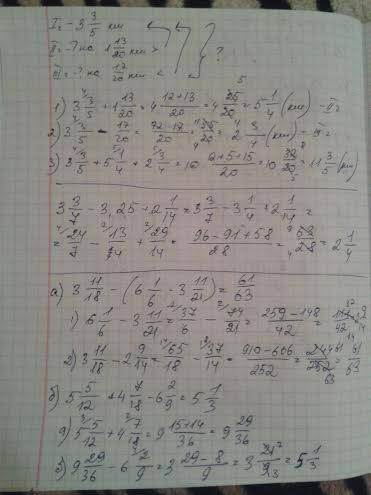 I = - 3 3/5 км
II = - ? на 1 13/20 км >
III = - ? на 17/20 км < ?
1) 3 3/5 + 1 13/20 = 4 (12+13)/20 = 4 25/20 = 5 1/4 (км) - II =
2) 3 3/5 - 17/20 = (72-17)/20 = 55/20 = 2 3/4 (км) =
3) 3 3/5 + 5 1/4 + 2 3/4 = 10 (12+5+15)/20 = 10 32/20 = 11 3/5 (км)
3 3/7 - 3,25 + 2 1/14 = 3 3/7 - 3 1/4 + 2 1/14 =
= 24/7 - 13/4 + 29/14 = (96-91+58)/28 = 63/28 = 2 1/4
а) 3 11/18 - (6 1/6 - 3 11/21) = 61/63
1) 6 1/6 - 3 11/21 = 37/6 - 74/21 = (259-148)/42 = 111/42
2) 3 11/18 - 2 9/14 = 65/18 - 37/14 = (910-666)/252 = 244/252 = 61/63
б) 5 5/12 + 4 7/18 - 6 2/9 = 5 1/3
1) 5 5/12 + 4 7/18 = 9 (15+14)/36 = 9 29/36
2) 9 29/36 - 6 2/9 = 3 (29-8)/9 = 3 21/9 = 5 1/3